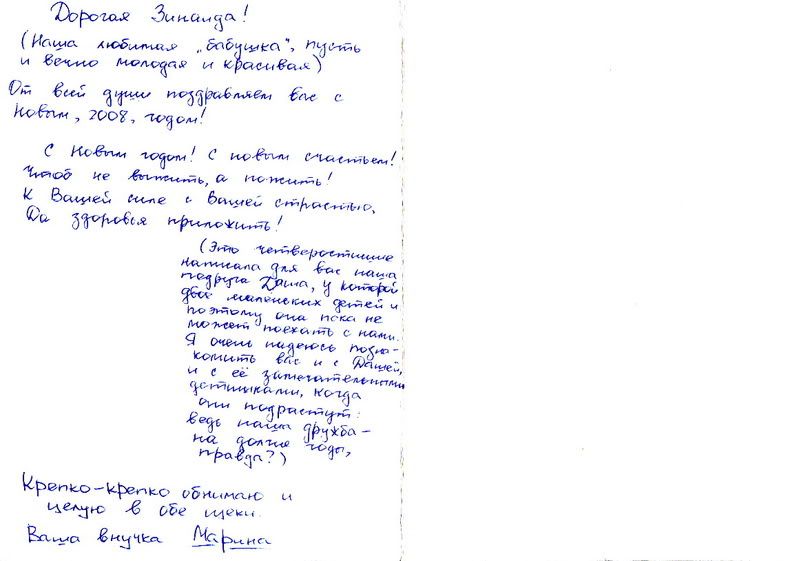 Дорогая Зинаида!
(Наша любимая „бабушка", пусть
и вечно молодая и красивая)
От всей души поздравляем вас с
Новым, 2008, годом!
С Новым годом! С новым счастьем!
Чтоб не выжить, а пожить!
К Вашей силе с Вашей страстью,
Да здоровья приложить!
(Это четверостишие
написала для вас наша
подруга Даша, у которой
двое маленьких детей и
поэтому она пока не
может поехать с нами.
Я очень надеюсь позна-
комить вас и с Дашей,
и с её замечательными
детишками, когда
они подрастут:
ведь наша дружба -
на долгие годы,
правда?)
Крепко-крепко обнимаю и
целую в обе щеки.
Ваша внучка Марина